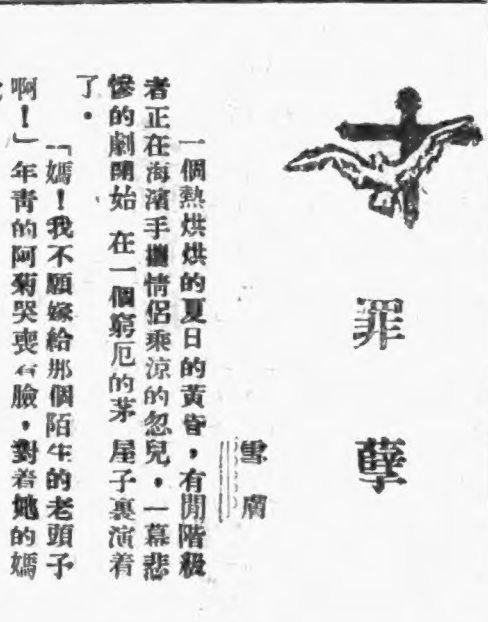 罪孽
雪膚
一個熱烘烘的夏日的黃昏，有閒階級
者正在海濱手攜情侶乘涼的忽兒，一幕悲
慘的劇開始 在一個窮厄的茅 屋子裏演着
了。
「嫣！我不願嫁給那個陌生的老頭子
啊！」年青的阿菊哭喪着臉，對着她的嫣